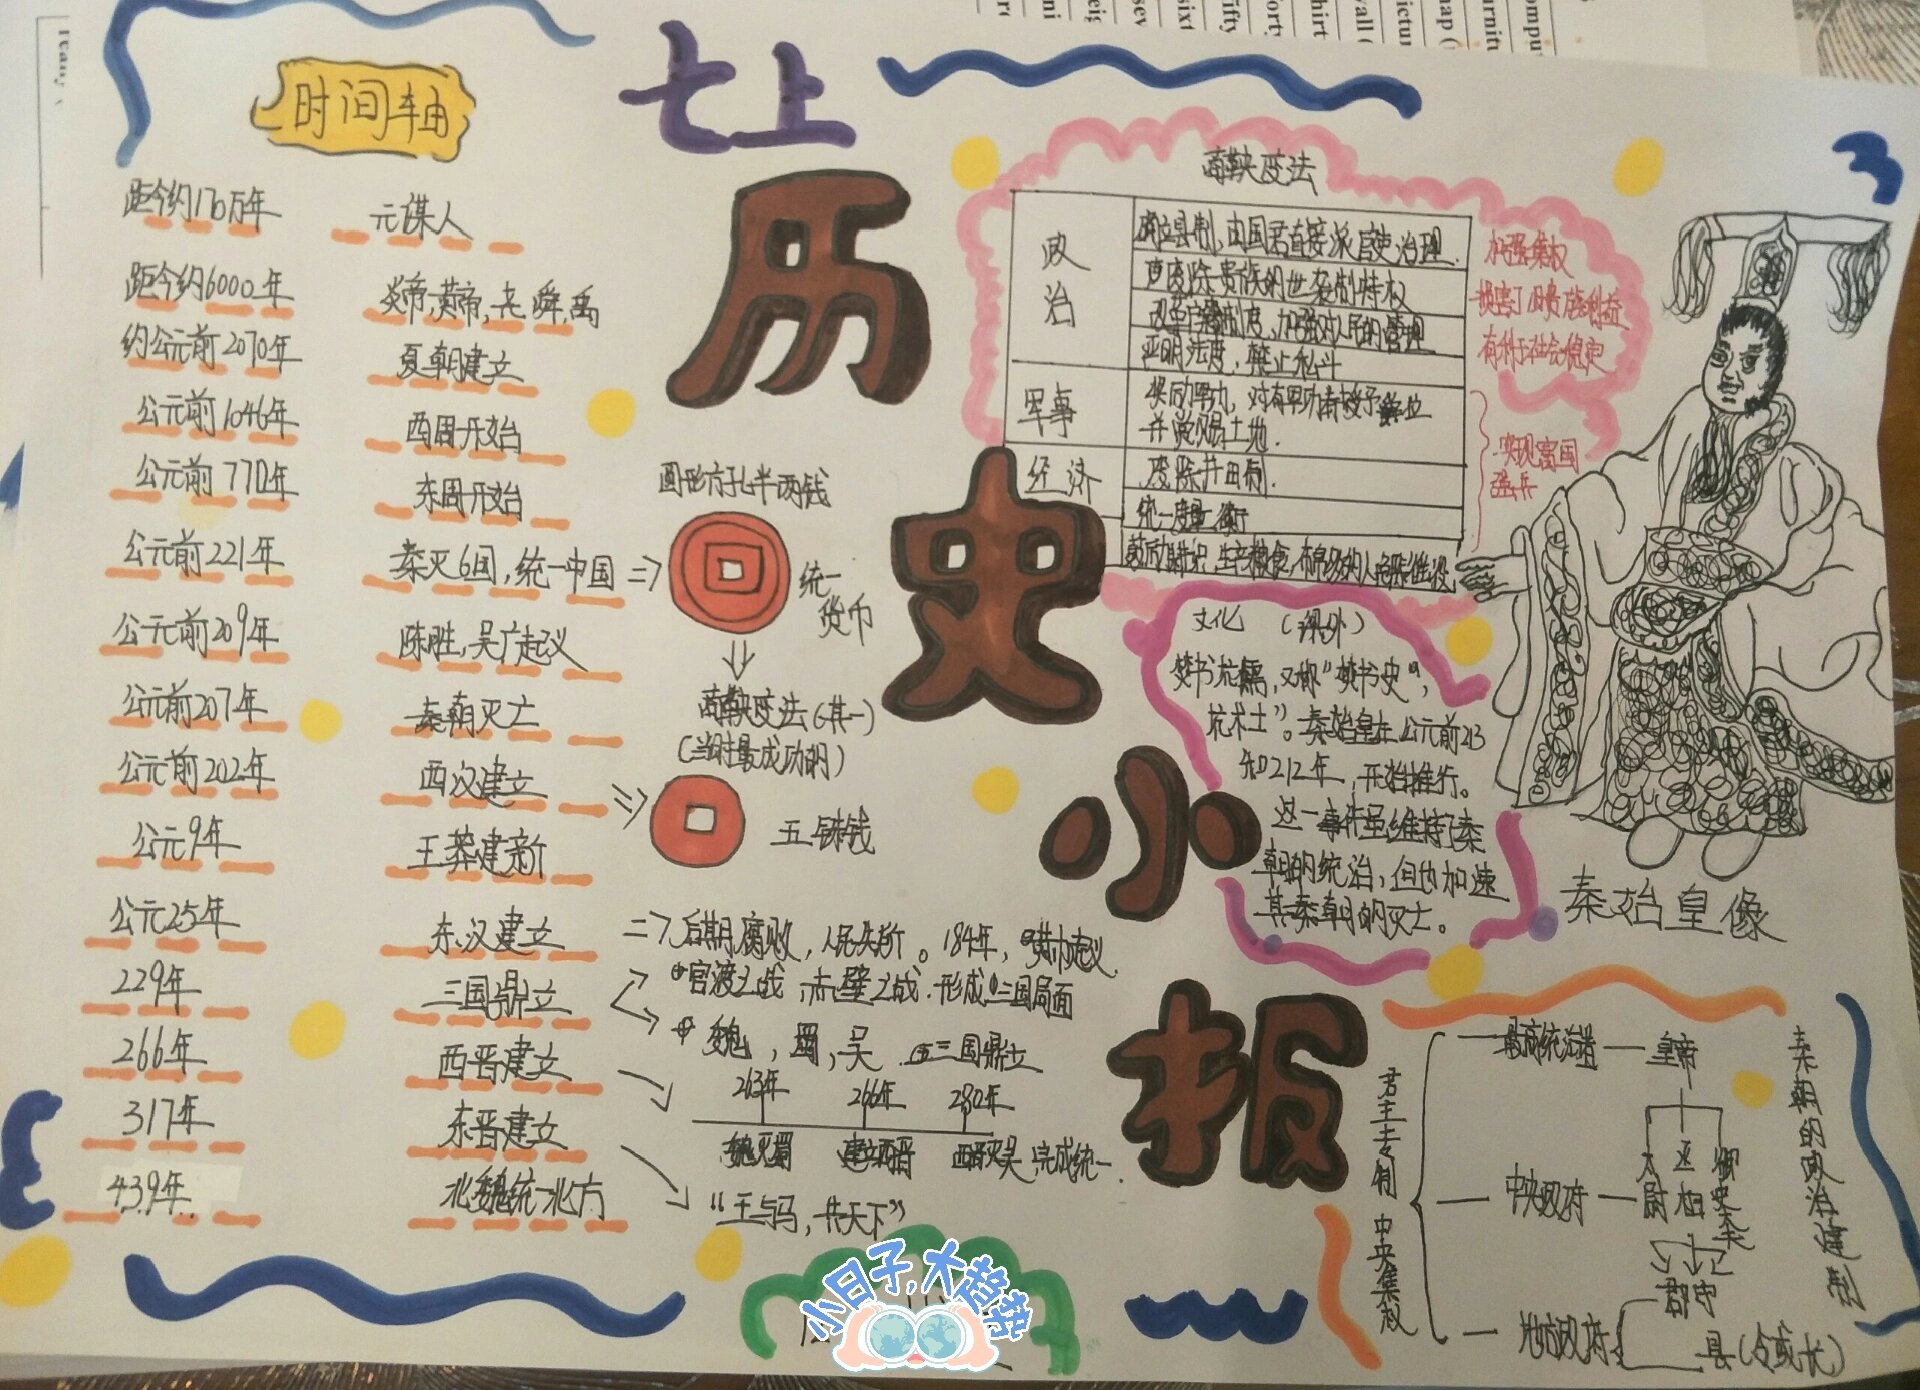 七上
历史小报
时间轴
距今约170万年 元谋人
距今约6000年 炎帝,黄帝,尧,舜,禹
约公元前2070年 夏朝建立
公元前1046年 西周开始
公元前770年 东周开始
公元前221年 秦灭6国,统一中国
公元前209年 陈胜,吴广起义
公元前207年 秦朝灭亡
公元前202年 西汉建立
公元9年 王莽建新
公元25年 东汉建立
229年 三国鼎立
266年 西晋建立
317年 东晋建立
439年 北魏统一北方
圆形方孔半两钱
统一
货币
商鞅变法(其一)
(当时最成功的)
五铢钱
后期腐败,人民失所。184年,黄巾起义
官渡之战,赤壁之战.形成三国局面
魏,蜀,吴 三国鼎立
263年 266年 280年
魏灭蜀 建立西晋 西晋灭吴 完成统一.
“王与马,共天下”
商鞅变法
政治
确立县制,由国君直接派官吏治理.
废除贵族的世袭制特权
改革户籍制度,加强对人民的管理
严明法度,禁止私斗
军事
奖励军功,对有军功者授予爵位
并赏赐土地.
经济
废除井田制.
统一度量衡
加强集权
损害了旧贵族利益
有利于社会稳定
实现富国
强兵
文化 (课外)
焚书坑儒,又称“焚书史”,
坑术士”。秦始皇在公元前213
和212年,开始推行。
这一事件虽维持了秦
朝的统治,但也加速
其秦朝的灭亡。
秦始皇像
秦朝的政治建制
君主专制 中央集权
最高统治者 皇帝
中央政府 太尉 丞相 御史大夫
郡守
地方政府 县(令或长)
小日子,大趋势